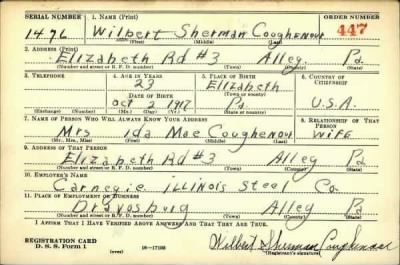 SERIAL NUMBER 1. NAME (Print) ORDER NUMBER
1476 Wilbert Sherman Coughenour 447
(First) (Middle) (Last)
2. ADDRESS (Print)
Elizabeth Rd #3 Alleg. Pa.
(Number and street or R. F. D. number) (Town) (County) (State)
3. TELEPHONE 4. AGE IN YEARS 5. PLACE OF BIRTH 6. COUNTRY OF CITIZENSHIP
23 Elizabeth
DATE OF BIRTH (Town or county)
Oct 2 1917 Pa. U.S.A.
(Exchange) (Number) (Mo.) (Day) (Yr.) (State or country)
7. NAME OF PERSON WHO WILL ALWAYS KNOW YOUR ADDRESS 8. RELATIONSHIP OF THAT PERSON
Mrs Ida Mae Coughenour Wife
(Mr., Mrs., Miss) (First) (Middle) (Last)
9. ADDRESS OF THAT PERSON
Elizabeth Rd #3 Alleg Pa
(Number and street or R. F. D. number) (Town) (County) (State)
10. EMPLOYER'S NAME
Carnegie ILLINOIS Steel Co.
11. PLACE OF EMPLOYMENT OR BUSINESS
Dravosburg Alleg Pa
(Number and street or R. F. D. number) (Town) (County) (State)
I AFFIRM THAT I HAVE VERIFIED ABOVE ANSWERS AND THAT THEY ARE TRUE.
REGISTRATION CARD
D. S. S. Form 1 (over) 16—17105 Wilbert Sherman Coughenour
(Registrant's signature)